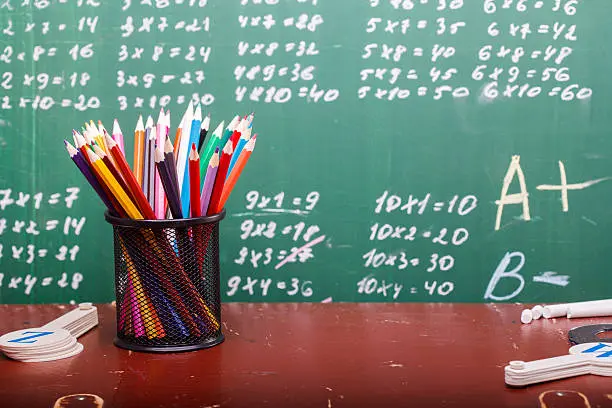 2×7 = 14
2×8 = 16
2×9 = 18
2×10 = 20
3×7 = 21
3×8 = 24
3×9 = 27
3×10 = 30
4×7 = 28
4×8 = 32
4×9 = 36
4×10 = 40
5×7 = 35
5×8 = 40
5×9 = 45
5×10 = 50
6×6 = 36
6×7 = 42
6×8 = 48
6×9 = 56
6×10 = 60
7×1 = 7
7×2 = 14
7×3 = 21
7×4 = 28
9×1 = 9
9×2 = 18
9×3 = 27
9×4 = 36
10×1 = 10
10×2 = 20
10×3 = 30
10×4 = 40
A+
B-